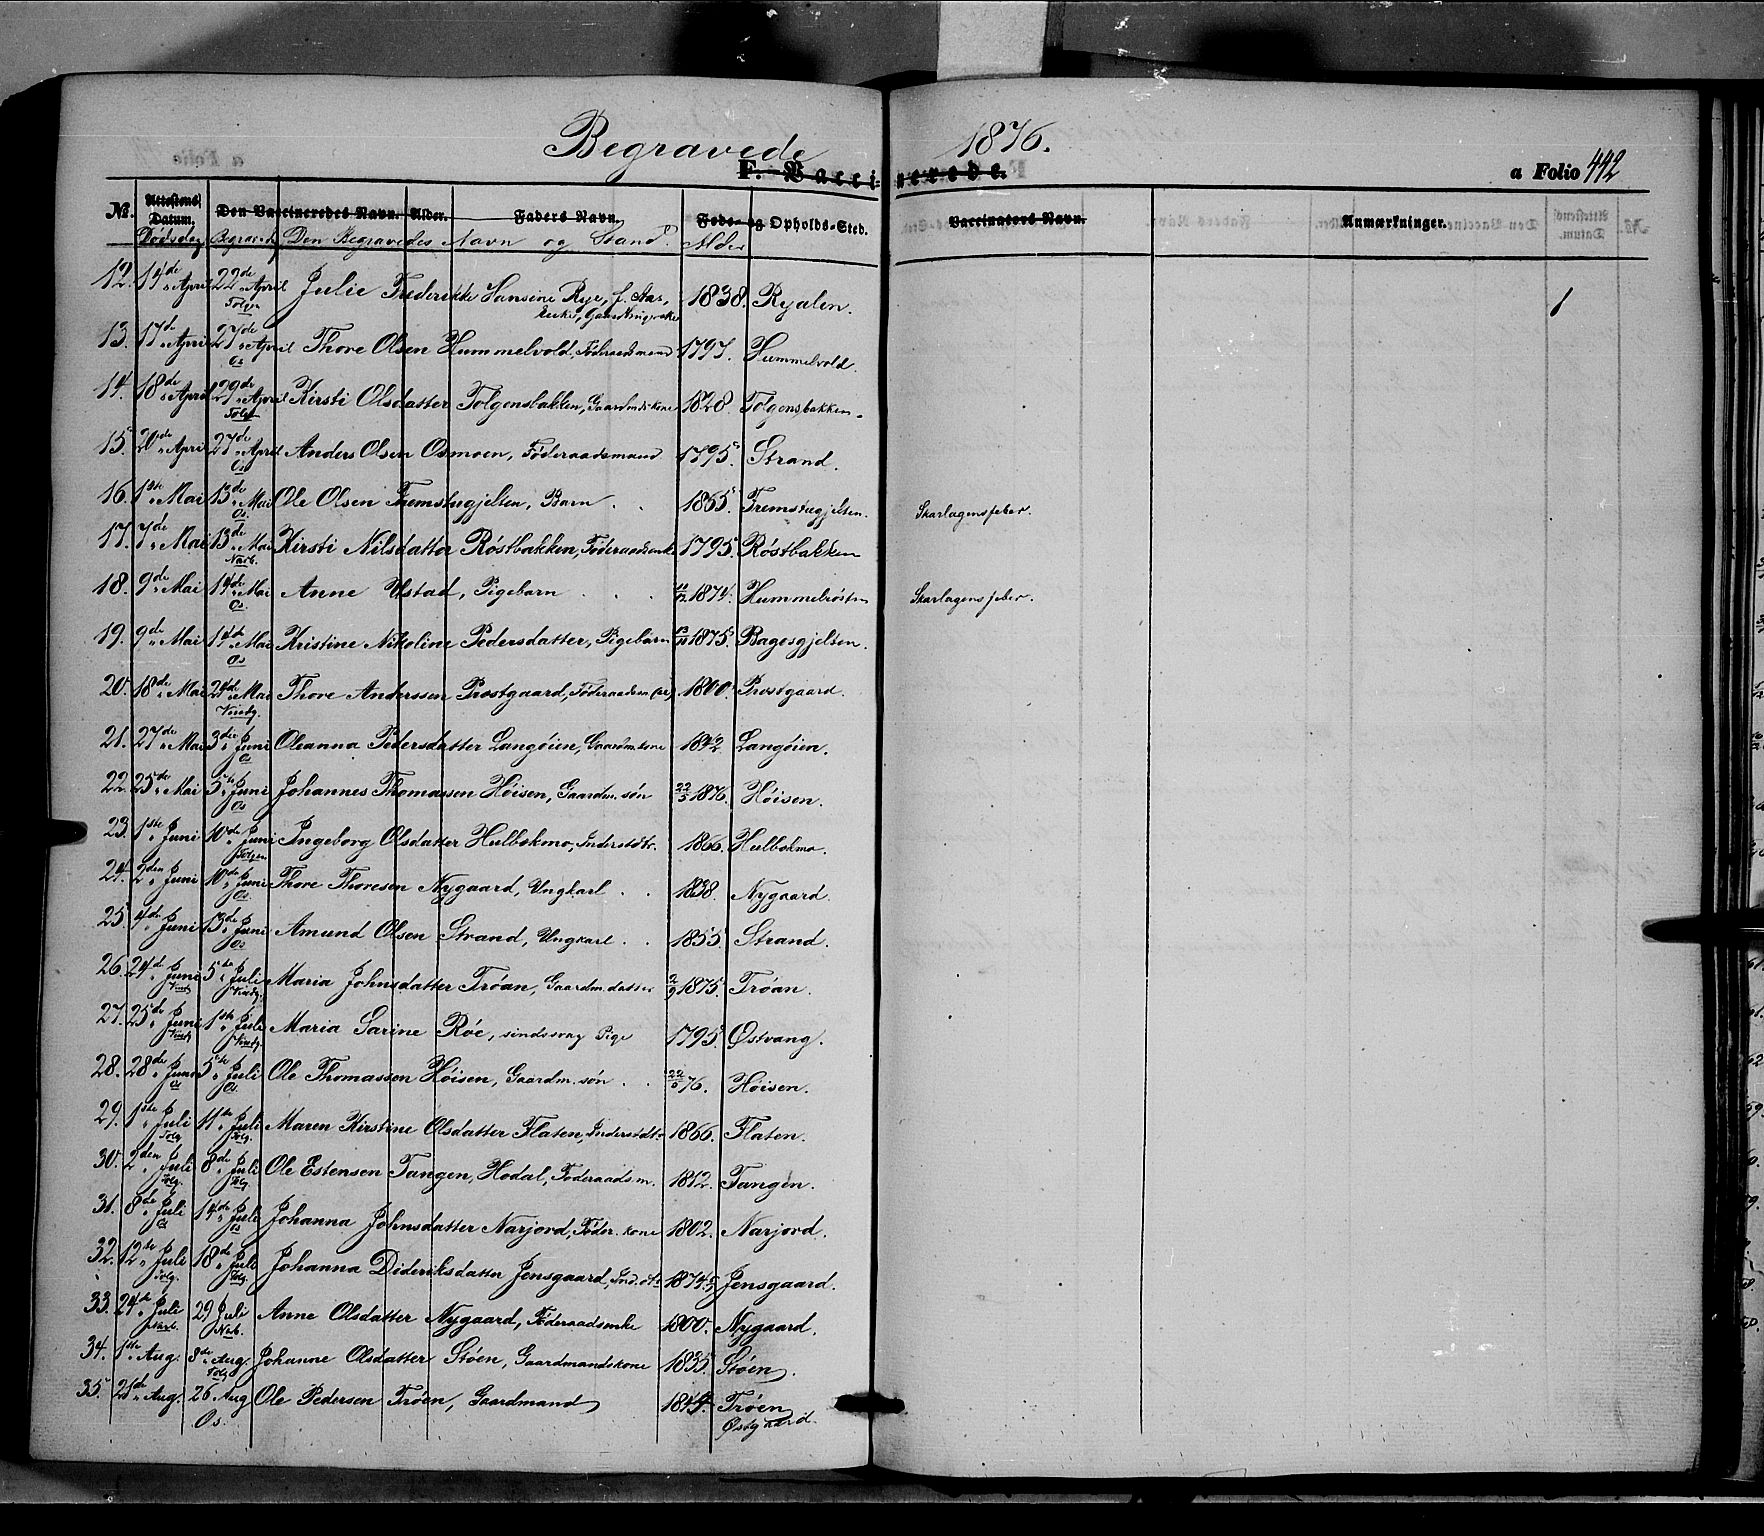 Begravede 1876.
F. Vaccinerede. a Folio 442
No. Attestens Datum. Den Vaccineredes Navn. Alder. Faders Navn. Føde- og Opholds-Sted. Vaccinators Navn. Anmærkninger.
Dødsdag Begravds Den Begravedes Navn og Stand. Alder
12. 14de April 22de April Tolgen Julie Frederikke Hansine Rye, f. Aas, 1838. Ryalen. 1
Enke, Gaardbrugerske
13. 17de April 27de April Os Thore Olsen Hummelvold, Føderaadsmand 1797. Hummelvold.
14. 18de April 29de April Tolgen Kirsti Olsdatter Tolgensbakken, Gaardmdskone 1828. Tolgensbakken.
15. 20de April 27de April Os Anders Olsen Osmoen, Føderaadsmand 1795. Strand.
16. 1ste Mai 13de Mai Os. Ole Olsen Fremstugjelten, Barn . . 1865. Fremstugjelten. Skarlagensfeber.
17. 7de Mai 13de Mai Narb. Kirsti Nilsdatter Røstbakken, Føderaadsenke 1795. Røstbakken
18. 9de Mai 14de Mai Os. Anne Ustad, Pigebarn . . . 1874. Hummelrøsten Skarlagensfeber.
19. 9de Mai 14de Mai Os Kristine Nikoline Pedersdatter, Pigebarn 1875. Bagesgjelten.
20. 18de Mai 24de Mai Vindg. Thore Anderssen Prostgaard, Føderaadsm 1800. Prostgaard.
21. 27de Mai 3die Juni Os Oleanna Pedersdatter Langøien, Gaardm.kone 1842 Langøien.
22. 25de Mai 5te Juni Os Johannes Thomassen Høisen, Gaardm. søn 22/5 1876. Høisen.
23. 1ste Juni 10de Juni Tolgen Ingeborg Olsdatter Hulbækmo, Inderstdtr. 1866. Hulbækmo.
24. 2den Juni 10de Juni Os. Thore Thoresen Nygaard, Ungkarl . . 1838. Nygaard.
25. 4de Juni 13de Juni Os Amund Olsen Strand, Ungkarl . . 1855. Strand.
26. 24de Juni Vindg 5te Juli Vindg. Maria Johnsdatter Trøan, Gaardm.datter 2/9 1875. Trøan.
27. 25de Juni Vindg 1ste Juli Vindg. Maria Sarine Røe, sindssvag Pige 1795. Østvang.
28. 28de Juni Os 5te Juli Os. Ole Thomassen Høisen, Gaardm. søn . . 22/5 76. Høisen.
29. 1ste Juli Tolg. 11te Juli Tolg. Maren Kirstine Olsdatter Flaten, Inderstdtr 1866. Flaten.
30. 2den Juli Tolg. 8de Juli Tolg. Ole Estensen Tangen, Hodal, Føderaadsm. 1812. Tangen.
31. 8de Juli Os 14de Juli Os Johanna Johnsdatter Narjord, Føder. kone 1802. Narjord.
32. 12te Juli Tolg. 18de Juli Tolg. Johanna Dideriksdatter Jensgaard, Ind. dtr 1874. Jensgaard.
33. 24de Juli Narb. 29 Juli Narb. Anne Olsdatter Nygaard, Føderaadsenke 1800. Nygaard.
34. 1ste Aug. 8de Aug. Tolg Johanne Olsdatter Støen, Gaardmandskone 1835. Støen.
35. 21de Aug. 26 Aug Os. Ole Pedersen Trøen, Gaardmand 1844. Trøen
Østgaard.